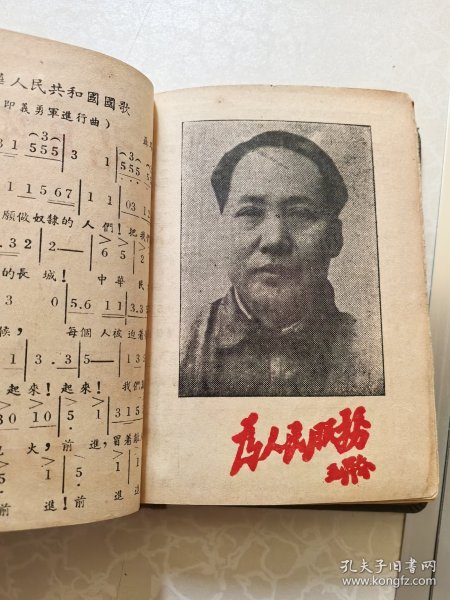 華人民共和國國歌
即義勇軍進行曲)
31 555 | 3 1 | 555 55
11 1567 | 11 03 12
願做奴隸的人們! 把我們
.32 | 2— | 6 5 | 2
的長城! 中華民
3 0 5.6 11 | 3.3
候, 每個人被迫著
1 | 3 .3 5— | 1.3 5
起來! 起來! 我們
30 10 | 5 1 | 315
火, 前進, 冒著
5 1 | 5 1 | 5 1 | 1
進! 前進
為人民服務
毛澤東
孔夫子旧书网
www.kongfz.com